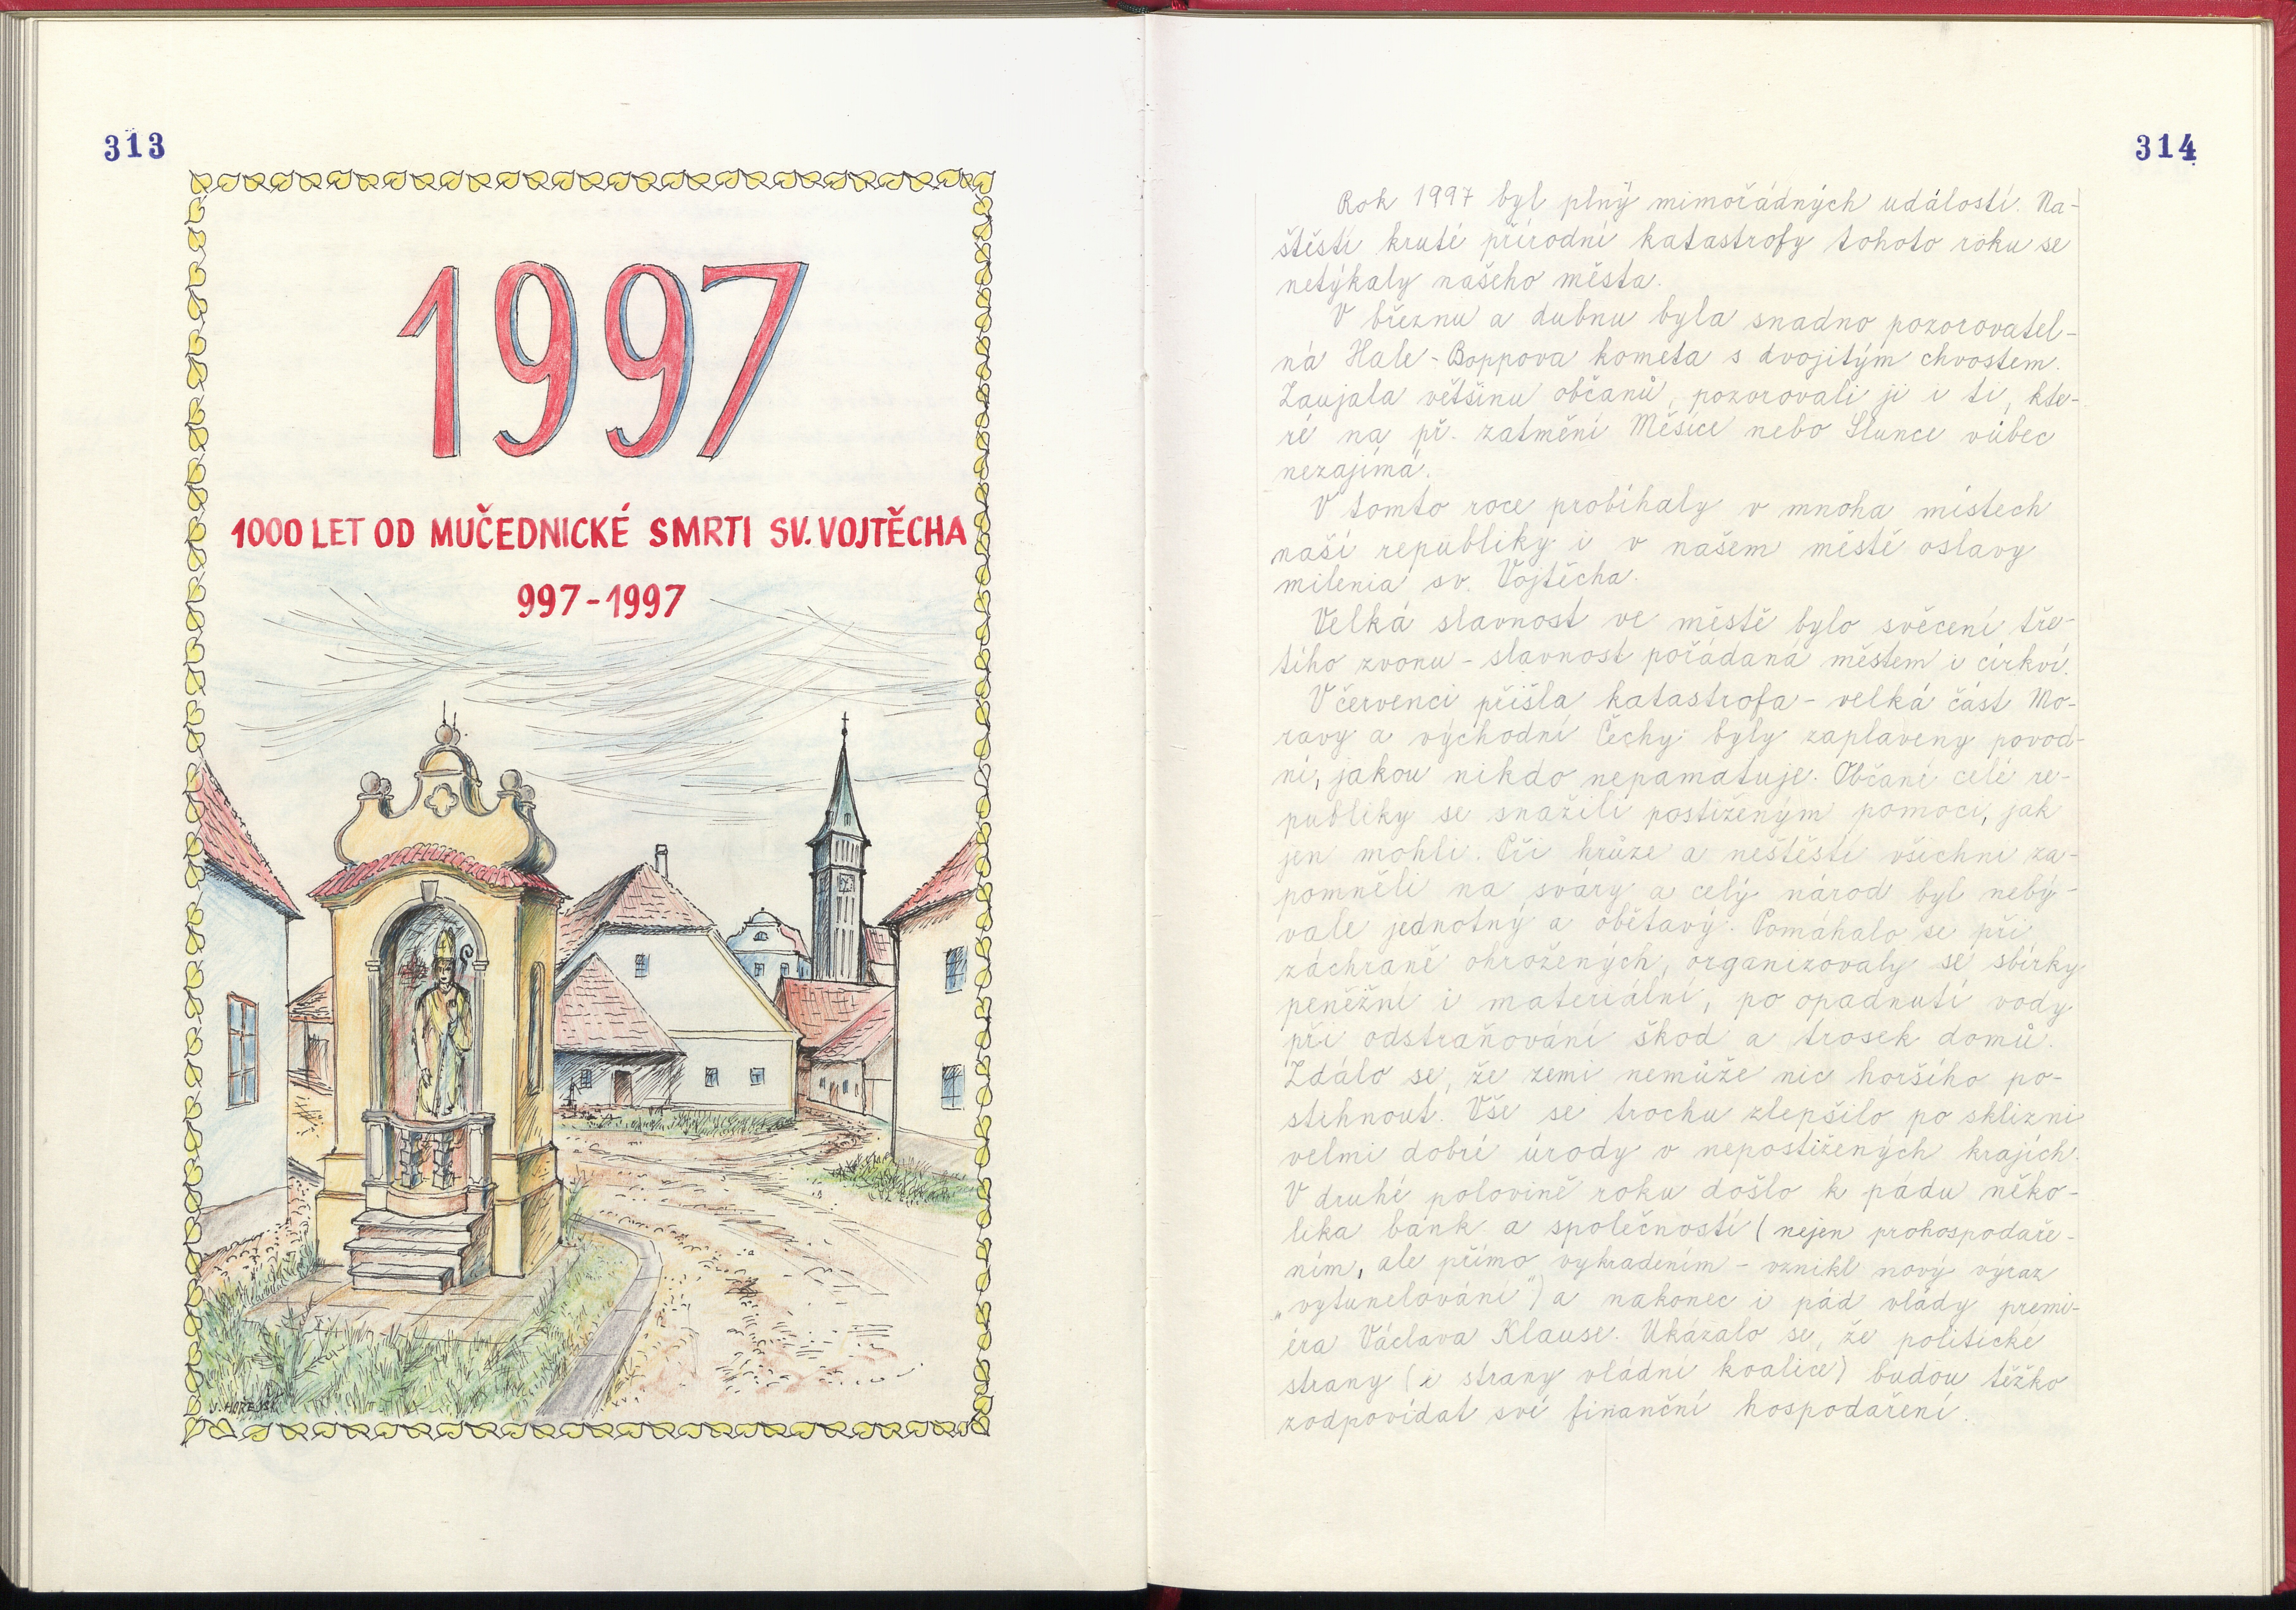 313
1997
1000 LET OD MUČEDNICKÉ SMRTI SV. VOJTĚCHA
997-1997
J. HOŘEJŠÍ
314
Rok 1997 byl plný mimořádných událostí. Na-
štěstí kruté přírodní katastrofy tohoto roku se
netýkaly našeho města.
V březnu a dubnu byla snadno pozorovatel-
ná Hale-Boppova kometa s dvojitým chvostem.
Zaujala většinu občanů, pozorovali ji i ti, kte-
ré na př. zatmění Měsíce nebo Slunce vůbec
nezajímá.
V tomto roce probíhaly v mnoha místech
naší republiky i v našem městě oslavy
milenia sv. Vojtěcha.
Velká slavnost ve městě bylo svěcení tře-
tího zvonu - slavnost pořádaná městem i církví.
V červenci přišla katastrofa - velká část Mo-
ravy a východní Čechy byly zaplaveny povod-
ní, jakou nikdo nepamatuje. Občané celé re-
publiky se snažili postiženým pomoci, jak
jen mohli. Při hrůze a neštěstí všichni za-
pomněli na sváry a celý národ byl neby-
vale jednotný a obětavý. Pomáhalo se při
záchraně ohrožených, organizovaly se sbírky
peněžní i materiální, po opadnutí vody
při odstraňování škod a trosek domů.
Zdálo se, že zemi nemůže nic horšího po-
stihnout. Vše se trochu zlepšilo po sklizni
velmi dobré úrody v nepostižených krajích.
V druhé polovině roku došlo k pádu něko-
lika bank a společností (nejen prohospodaře-
ním, ale přímo vykradením - vznikl nový výraz
„vytunelování") a nakonec i pád vlády premi-
éra Václava Klause. Ukázalo se, že politické
strany (i strany vládní koalice) budou těžko
zodpovídat své finanční hospodaření.